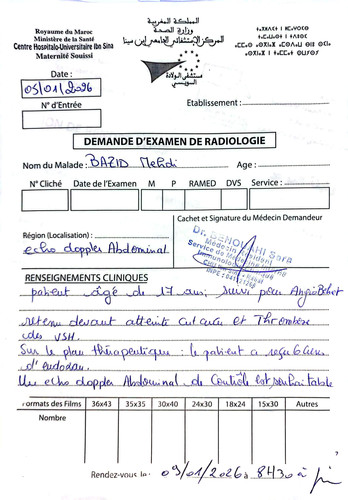 Royaume du Maroc
Ministère de la Santé
Centre Hospitalo-Universitaire Ibn Sina
Maternité Souissi
المملكة المغربية
وزارة الصحة
المركز الاستشفائي الجامعي ابن سينا
مستشفى الولادة
السويسي
Date :
05/01/2026
N° d'Entrée
Etablissement :
DEMANDE D'EXAMEN DE RADIOLOGIE
Nom du Malade : BAZID Mehdi Age :
N° Cliché Date de l'Examen M P RAMED DVS Service :
Cachet et Signature du Médecin Demandeur
Région (Localisation) :
echo doppler Abdominal
Dr. Sara
Médecin Résident
Service de Médecine
RENSEIGNEMENTS CLINIQUES
patient âgé de 17 ans, suivi pour Angio Behçet
retenu devant atteinte et Thrombose
des VSH.
Sur le plan thérapeutique : le patient a reçu
d'endoxan.
Un echo doppler Abdominal de Contrôle est souhaitable
Formats des Films 36x43 35x35 30x40 24x30 18x24 15x30 Autres
Nombre
Rendez-vous le : 09/01/2026 à 8H30 à